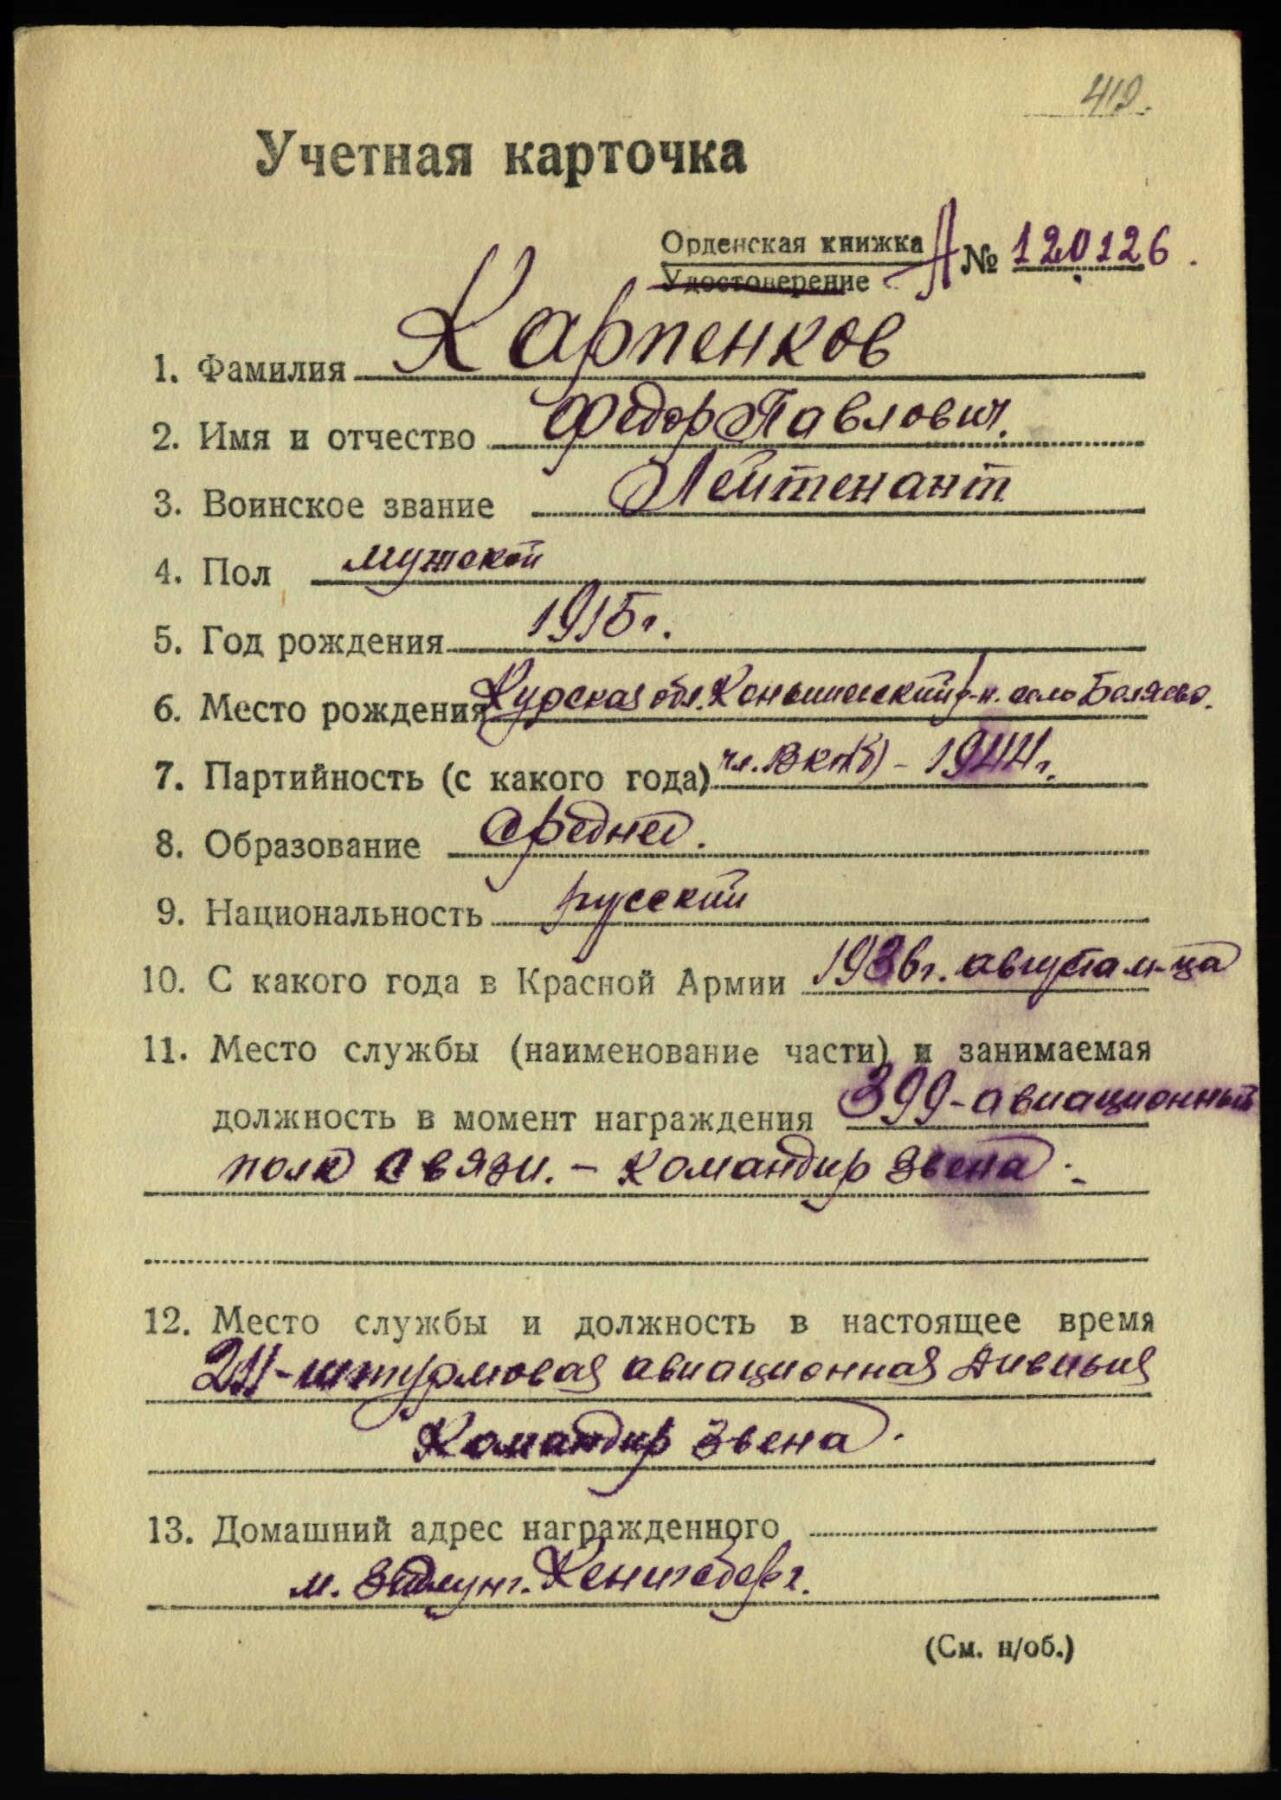 412.
Учетная карточка
Орденская книжка А № 120126.
Удостоверение
1. Фамилия Карпенков
2. Имя и отчество Федор Павлович.
3. Воинское звание Лейтенант
4. Пол мужской
5. Год рождения 1915 г.
6. Место рождения Курская обл. Конышевский р-н. село Беляево.
7. Партийность (с какого года) чл. ВКП(б) - 1944 г.
8. Образование Среднее.
9. Национальность русский
10. С какого года в Красной Армии 1936 г. августа м-ца
11. Место службы (наименование части) и занимаемая
должность в момент награждения 399-авиационный
полк связи. - командир звена.
12. Место службы и должность в настоящее время
211-штурмовая авиационная дивизия
Командир звена.
13. Домашний адрес награжденного
м. Кенигсберг.
(См. н/об.)